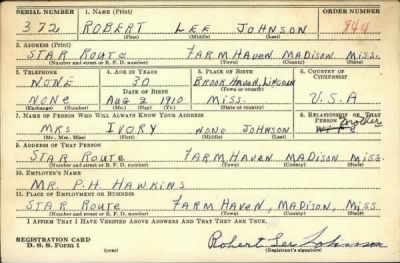 SERIAL NUMBER 1. NAME (Print) ORDER NUMBER
372 ROBERT LEE JOHNSON 944
(First) (Middle) (Last)
2. ADDRESS (Print)
STAR ROUTE FARMHAVEN MADISON MISS.
(Number and street or R. F. D. number) (Town) (County) (State)
3. TELEPHONE 4. AGE IN YEARS 5. PLACE OF BIRTH 6. COUNTRY OF CITIZENSHIP
NONE 30 BROOKHAVEN, LINCOLN
DATE OF BIRTH (Town or county)
NONE AUG 2 1910 MISS. U.S.A
(Exchange) (Number) (Mo.) (Day) (Yr.) (State or country)
7. NAME OF PERSON WHO WILL ALWAYS KNOW YOUR ADDRESS 8. RELATIONSHIP OF THAT PERSON
Mother
MRS IVORY NONE JOHNSON
(Mr., Mrs., Miss) (First) (Middle) (Last)
9. ADDRESS OF THAT PERSON
STAR ROUTE FARMHAVEN MADISON MISS.
(Number and street or R. F. D. number) (Town) (County) (State)
10. EMPLOYER'S NAME
MR. P.H. HAWKINS
11. PLACE OF EMPLOYMENT OR BUSINESS
STAR ROUTE FARM HAVEN, MADISON, MISS.
(Number and street or R. F. D. number) (Town) (County) (State)
I AFFIRM THAT I HAVE VERIFIED ABOVE ANSWERS AND THAT THEY ARE TRUE.
REGISTRATION CARD
D. S. S. Form 1 (over) Robert Lee Johnson
(Registrant's signature)